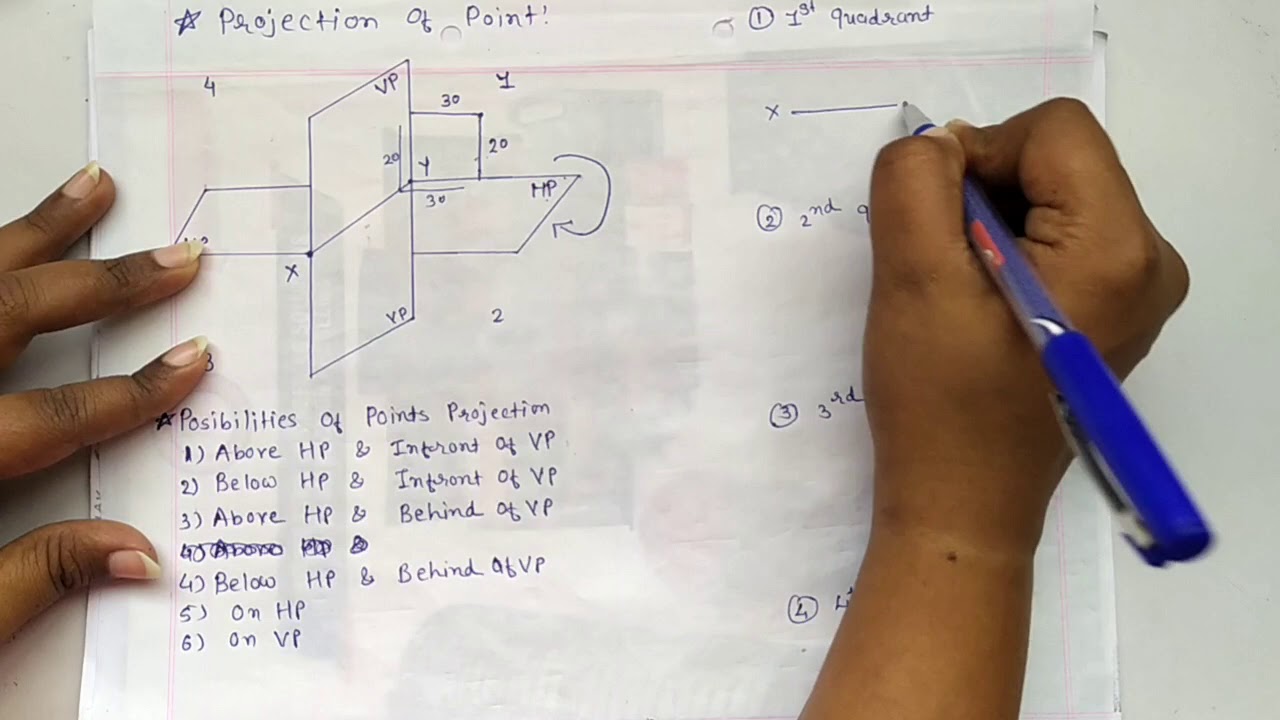 ☆ Projection Of Point!
① 1st quadrant
4
VP
1
30
20
20
Y
HP
30
X
VP
2
3
X
② 2nd q
③ 3rd
④
☆ Posibilities Of Points Projection
1) Above HP & Infront Of VP
2) Below HP & Infront Of VP
3) Above HP & Behind Of VP
4) Below HP & Behind Of VP
5) On HP
6) On VP